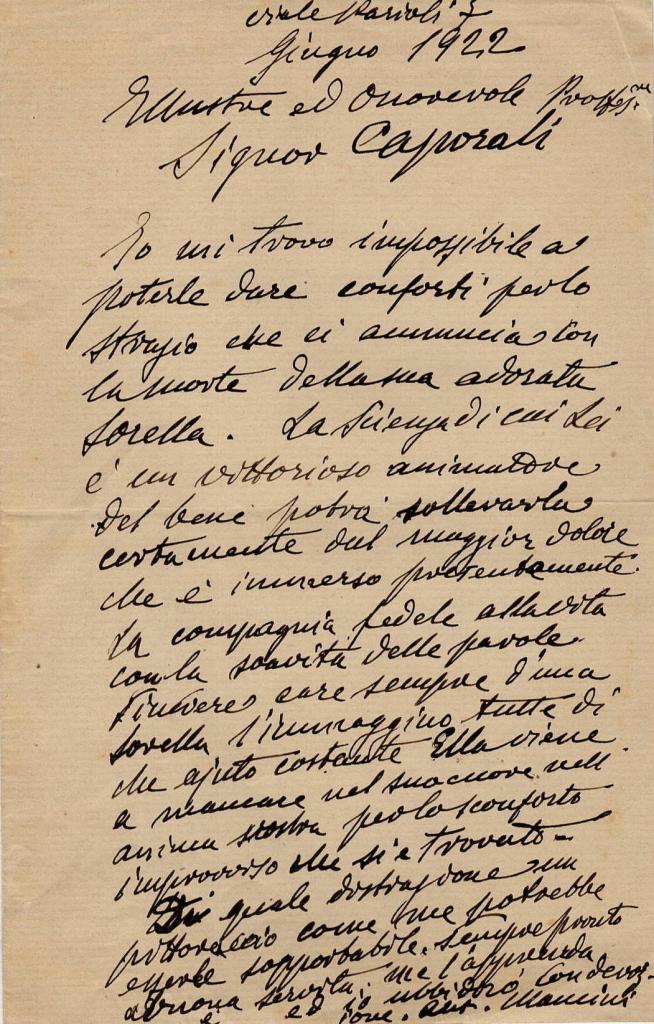 viale Parioli 7
Giugno 1922
Illustre ed Onorevole Profess.re
Signor Caporali
Io mi trovo impossibile a
poterle dare conforti per lo
strazio che ci annuncia con
la morte della sua adorata
sorella. La Scienza di cui Lei
è un vittorioso animatore
del bene potrà sollevarla
certamente dal maggior dolore
che è immerso presentemente.
La compagnia fedele alla vita
con la soavità delle parole
sincere care sempre d'una
sorella l'immaggino tutte di
che ajuto costante Ella viene
a mancare nel suo cuore nell
anima nostra per lo sconforto
improvviso che si è trovato -
Di quale distrazione un
pittoreccio come me potrebbe
esserle sopportabile. Sempre pronto
a buona servitù, me l'apprenda
ed io ubbidirò con devoz-
ione. Ant. Mancini